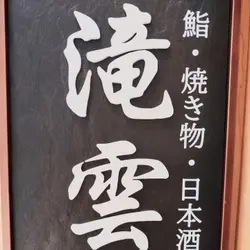 鮨・焼き物・日本酒
滝雲